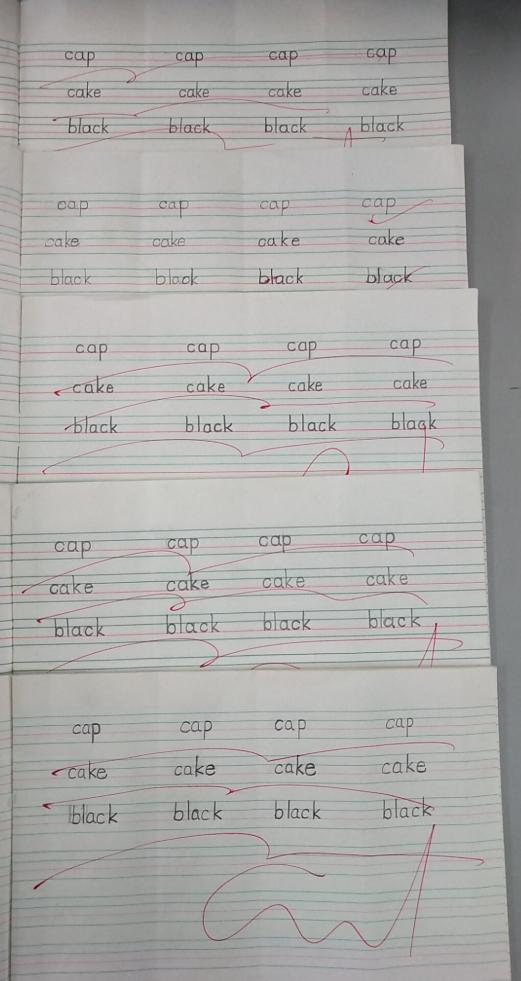 cap cap cap cap
cake cake cake cake
black black black black
cap cap cap cap
cake cake cake cake
black black black black
cap cap cap cap
cake cake cake cake
black black black black
cap cap cap cap
cake cake cake cake
black black black black
cap cap cap cap
cake cake cake cake
black black black black